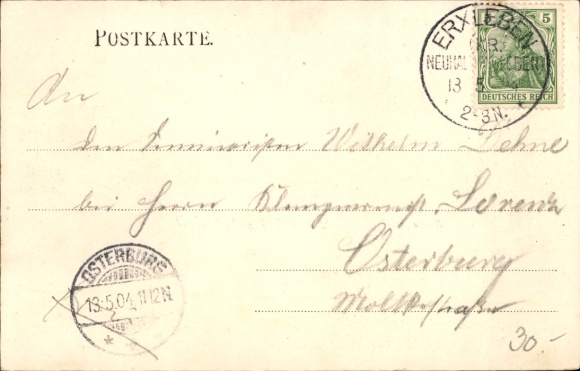 POSTKARTE.
ERXLEBEN
KR.
13 5
2-3N.
5
DEUTSCHES REICH
An
den Seminaristen Wilhelm Dehne
bei Herrn Klempnermstr. Lorenz
Osterburg
Moltkestraße
OSTERBURG
13.5.04.11-12N.
30.-